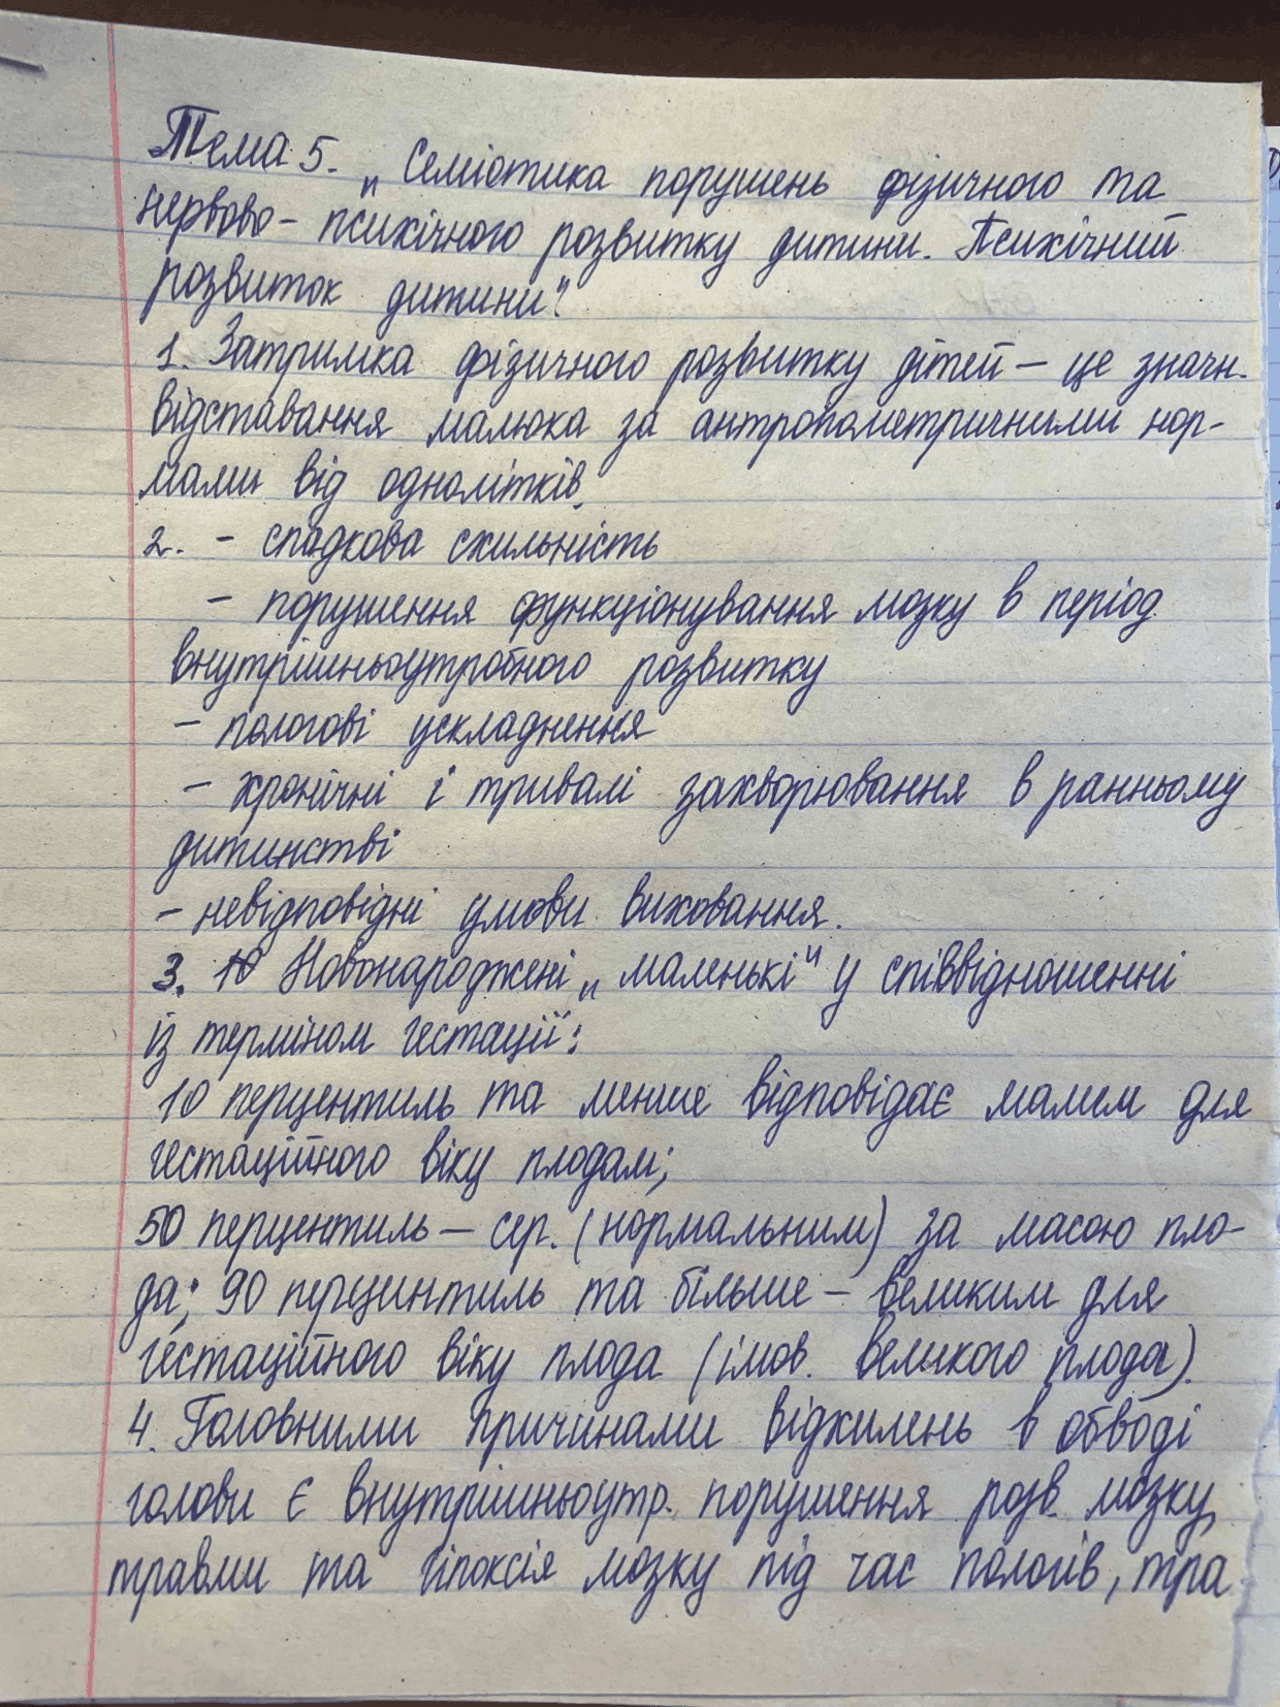 Тема 5. „Семіотика порушень фізичного та
нервово - психічного розвитку дитини. Психічний
розвиток дитини".
1. Затримка фізичного розвитку дітей – це значн.
відставання малюка за антропометричними нор-
мами від однолітків.
2. - спадкова схильність
- порушення функціонування мозку в період
внутрішньоутробного розвитку
- пологові ускладнення
- хронічні і тривалі захворювання в ранньому
дитинстві
- невідповідні умови виховання.
3. 10 Новонароджені „маленькі" у співвідношенні
із терміном гестації:
10 перцентиль та менше відповідає малим для
гестаційного віку плодам;
50 перцентиль – сер. (нормальним) за масою пло-
да; 90 перцинтиль та більше – великим для
гестаційного віку плода (імов. великого плода).
4. Головними причинами відхилень в обводі
голови є внутрішньоутр. порушення розв. мозку,
травми та гіпоксія мозку під час пологів, тра